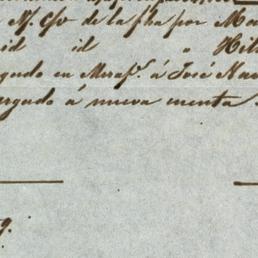 N. c/o de la fha por Ma
id id " Hil
gado en Merap.l á José Nav
argado á nueva cuenta
9.